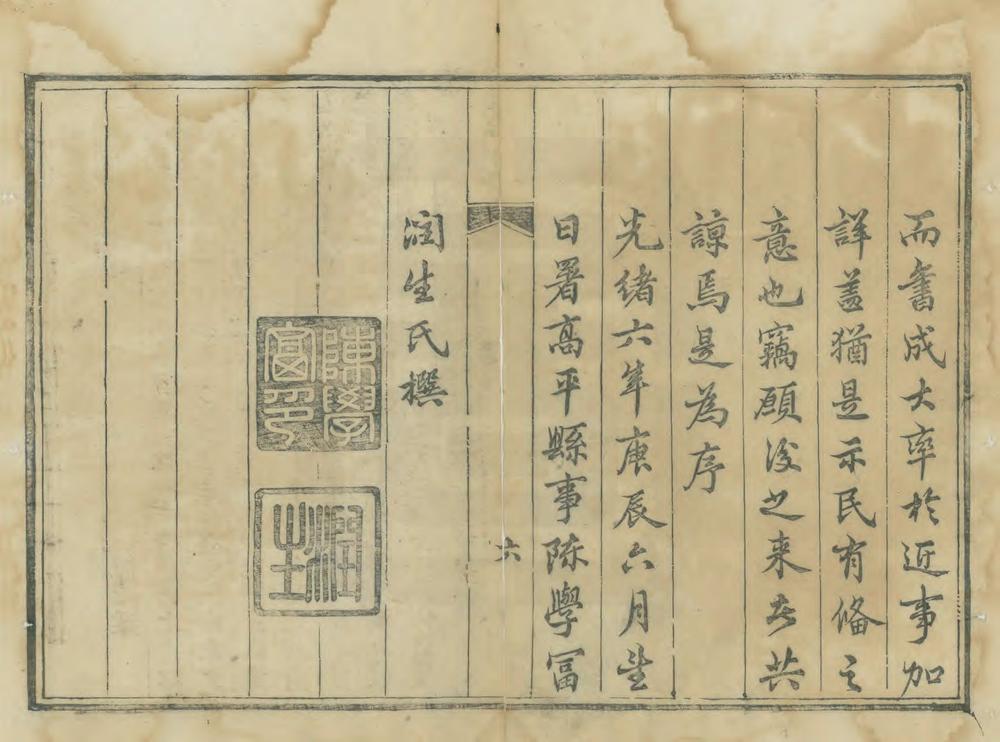 而書成大率於近事加
詳蓋猶是示民有備之
意也竊願後之来者共
諒焉是為序
光緒六年庚辰六月望
日署高平縣事陈學富
六
潤生氏撰
陳學富印
潤生